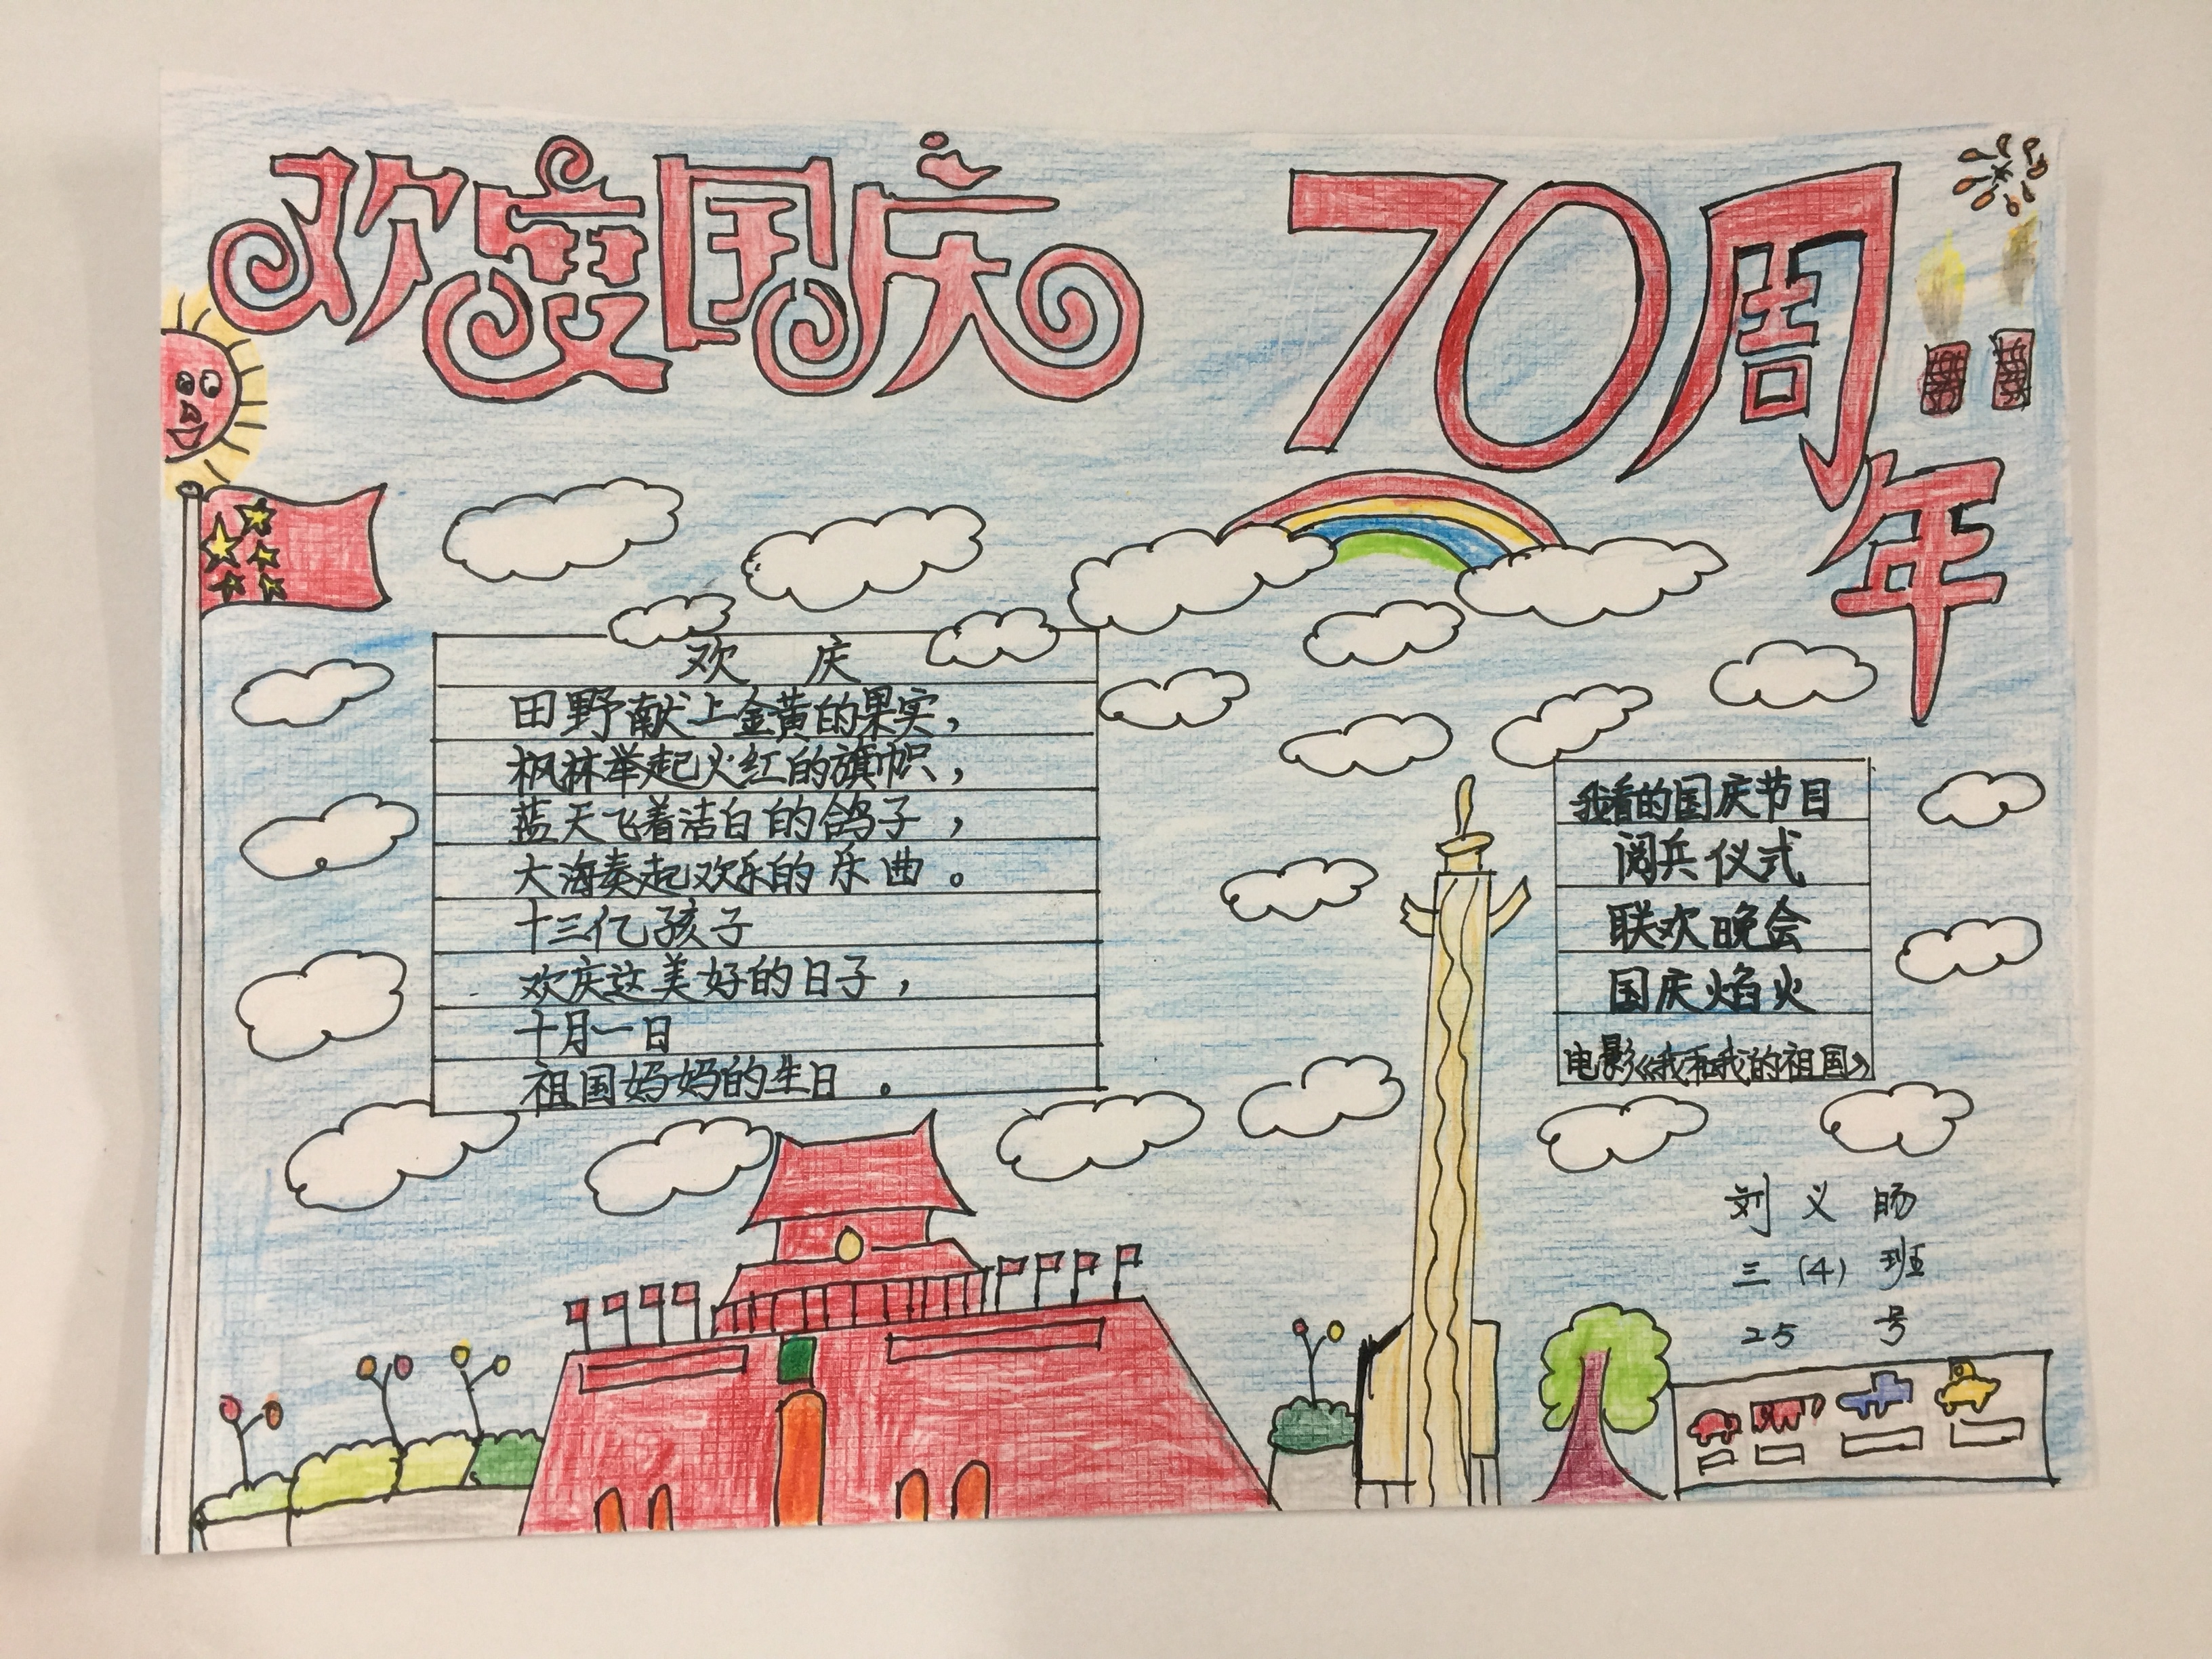 欢度国庆
70周年
欢 庆
田野献上金黄的果实，
枫林举起火红的旗帜，
蓝天飞着洁白的鸽子，
大海奏起欢乐的乐曲。
十三亿孩子
欢庆这美好的日子，
十月一日
祖国妈妈的生日。
我看的国庆节目
阅兵仪式
联欢晚会
国庆焰火
电影《我和我的祖国》
刘义旸
三(4)班
25号